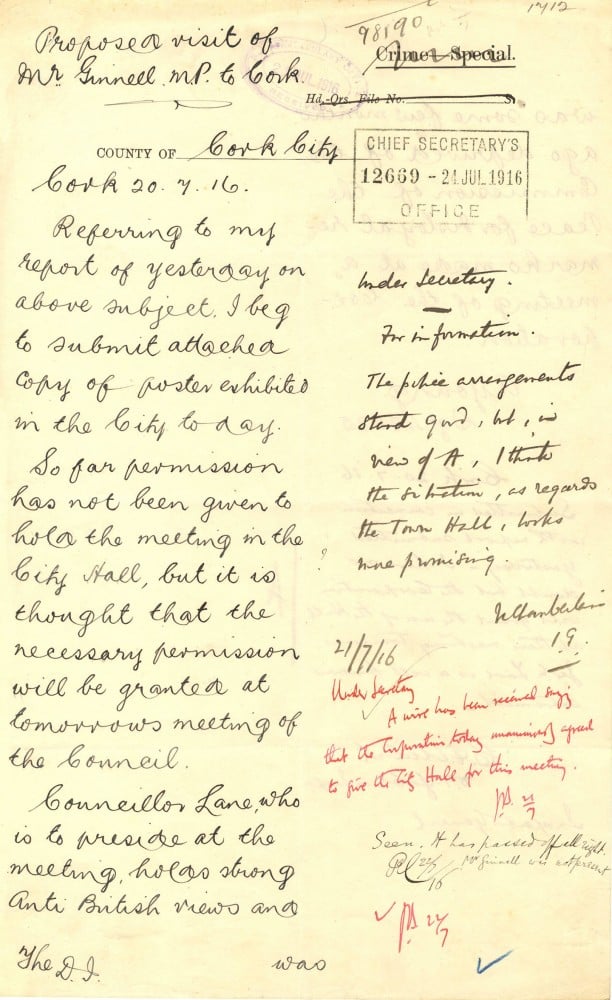 1712
98190
Proposed visit of
Mr. Ginnell. M.P. to Cork
Crime Special.
Hd.-Qrs. File No. S.
JUL 1916
COUNTY OF Cork City
Cork 20.7.16.
CHIEF SECRETARY'S
12669 - 24 JUL. 1916
OFFICE
Referring to my
report of yesterday on
above subject. I beg
to submit attached
copy of poster exhibited
in the City to day.
So far permission
has not been given to
hold the meeting in the
City Hall, but it is
thought that the
necessary permission
will be granted at
tomorrows meeting of
the Council.
Councillor Lane, who
is to preside at the
meeting, holds strong
Anti British views and
The D.I.
was
Under Secretary.
For information.
The police arrangements
stand good, but, in
view of A, I think
the situation, as regards
the Town Hall, looks
more promising.
?
N Chamberlain
I.G.
21/7/16
Under Secretary
A wire has been received saying
that the Corporation today unanimously agreed
to give the City Hall for this meeting.
21/7
Seen. It has passed off all right.
Mr Ginnell was not present
/16